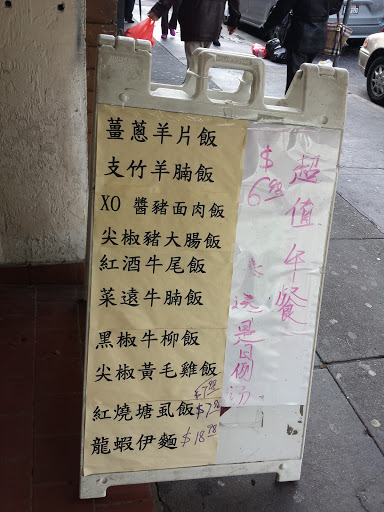 薑蔥羊片飯
支竹羊腩飯
XO 醬豬面肉飯
尖椒豬大腸飯
紅酒牛尾飯
菜遠牛腩飯
黑椒牛柳飯
尖椒黃毛雞飯
紅燒塘虱飯 $7.98
龍蝦伊麵 $18.98
超值午餐
$6.98
送是日例汤